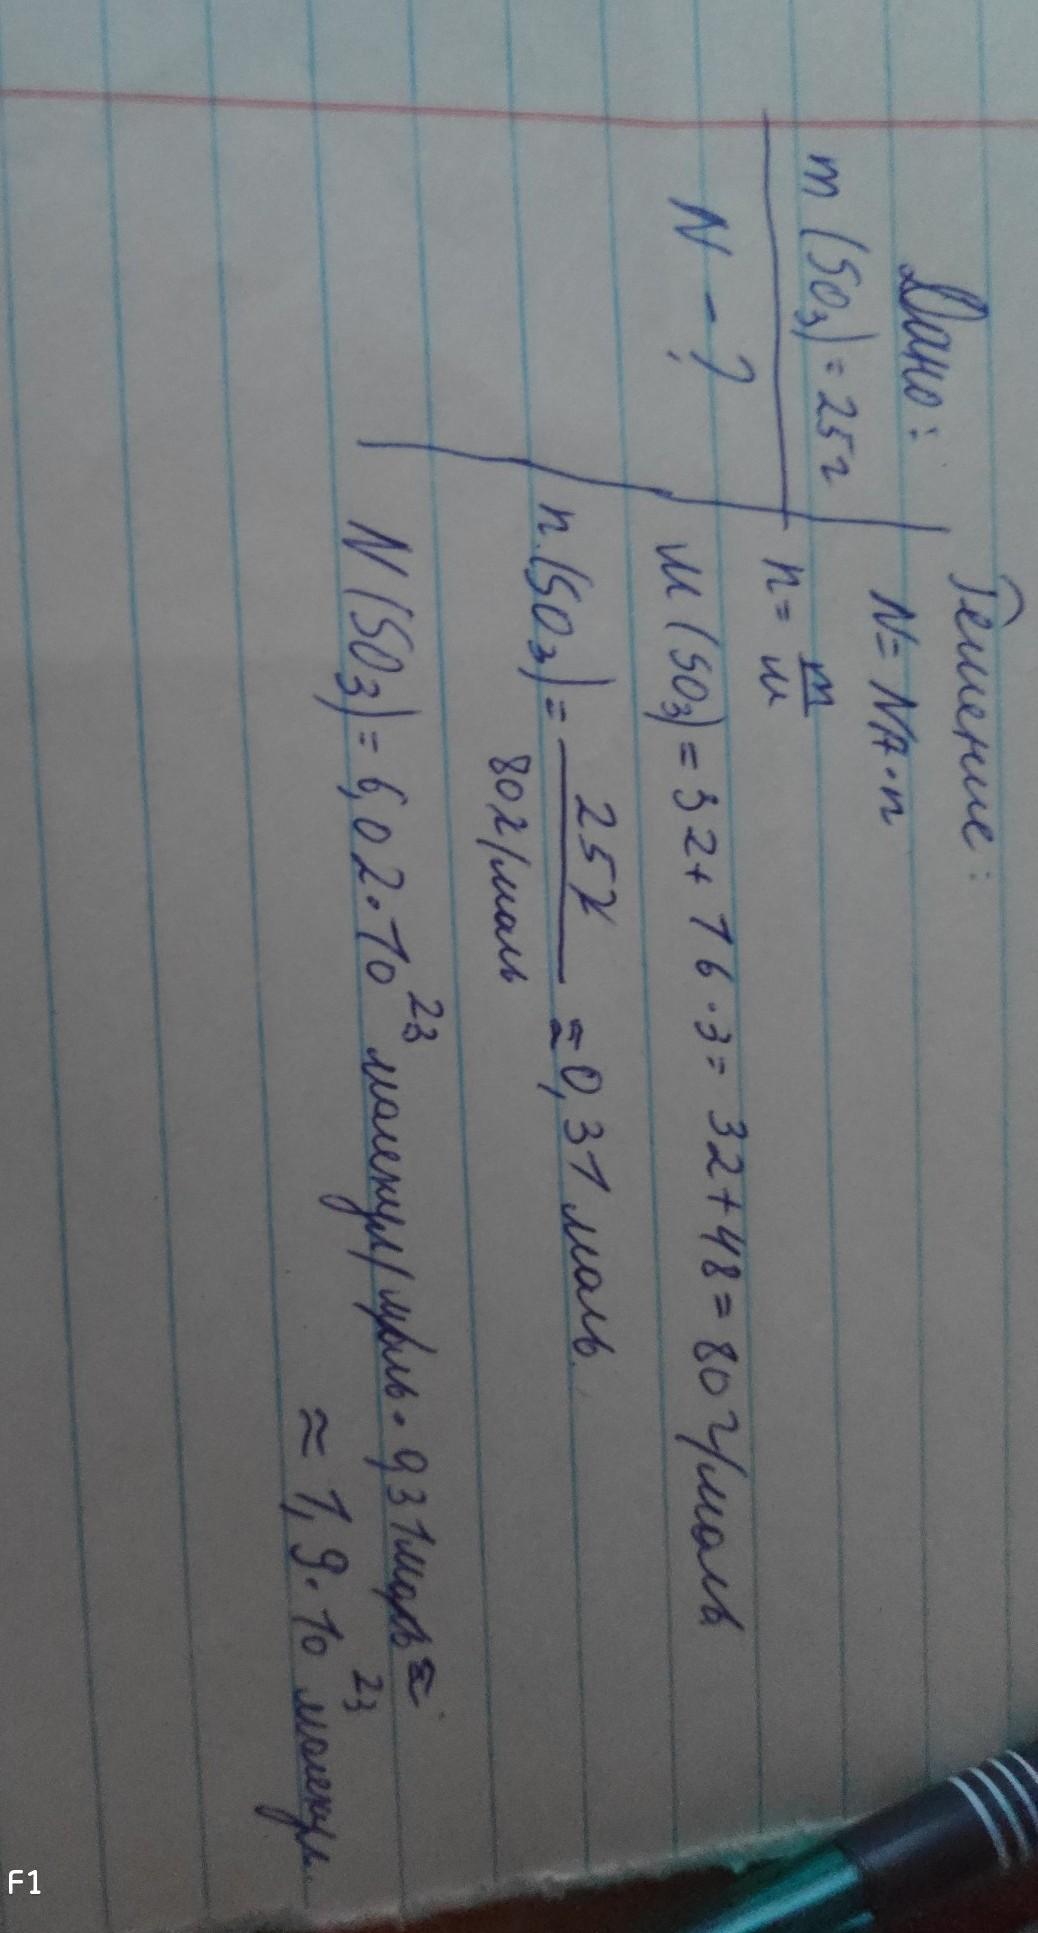 Дано:
m (SO3) = 25 г
N - ?
Решение:
N = NA · n
n = m/M
M (SO3) = 32 + 16 · 3 = 32 + 48 = 80 г/моль
n (SO3) = 25 г / 80 г/моль ≈ 0,31 моль.
N (SO3) = 6,02 · 10²³ молекул/моль · 0,31 моль ≈
≈ 1,9 · 10²³ молекул.
F1